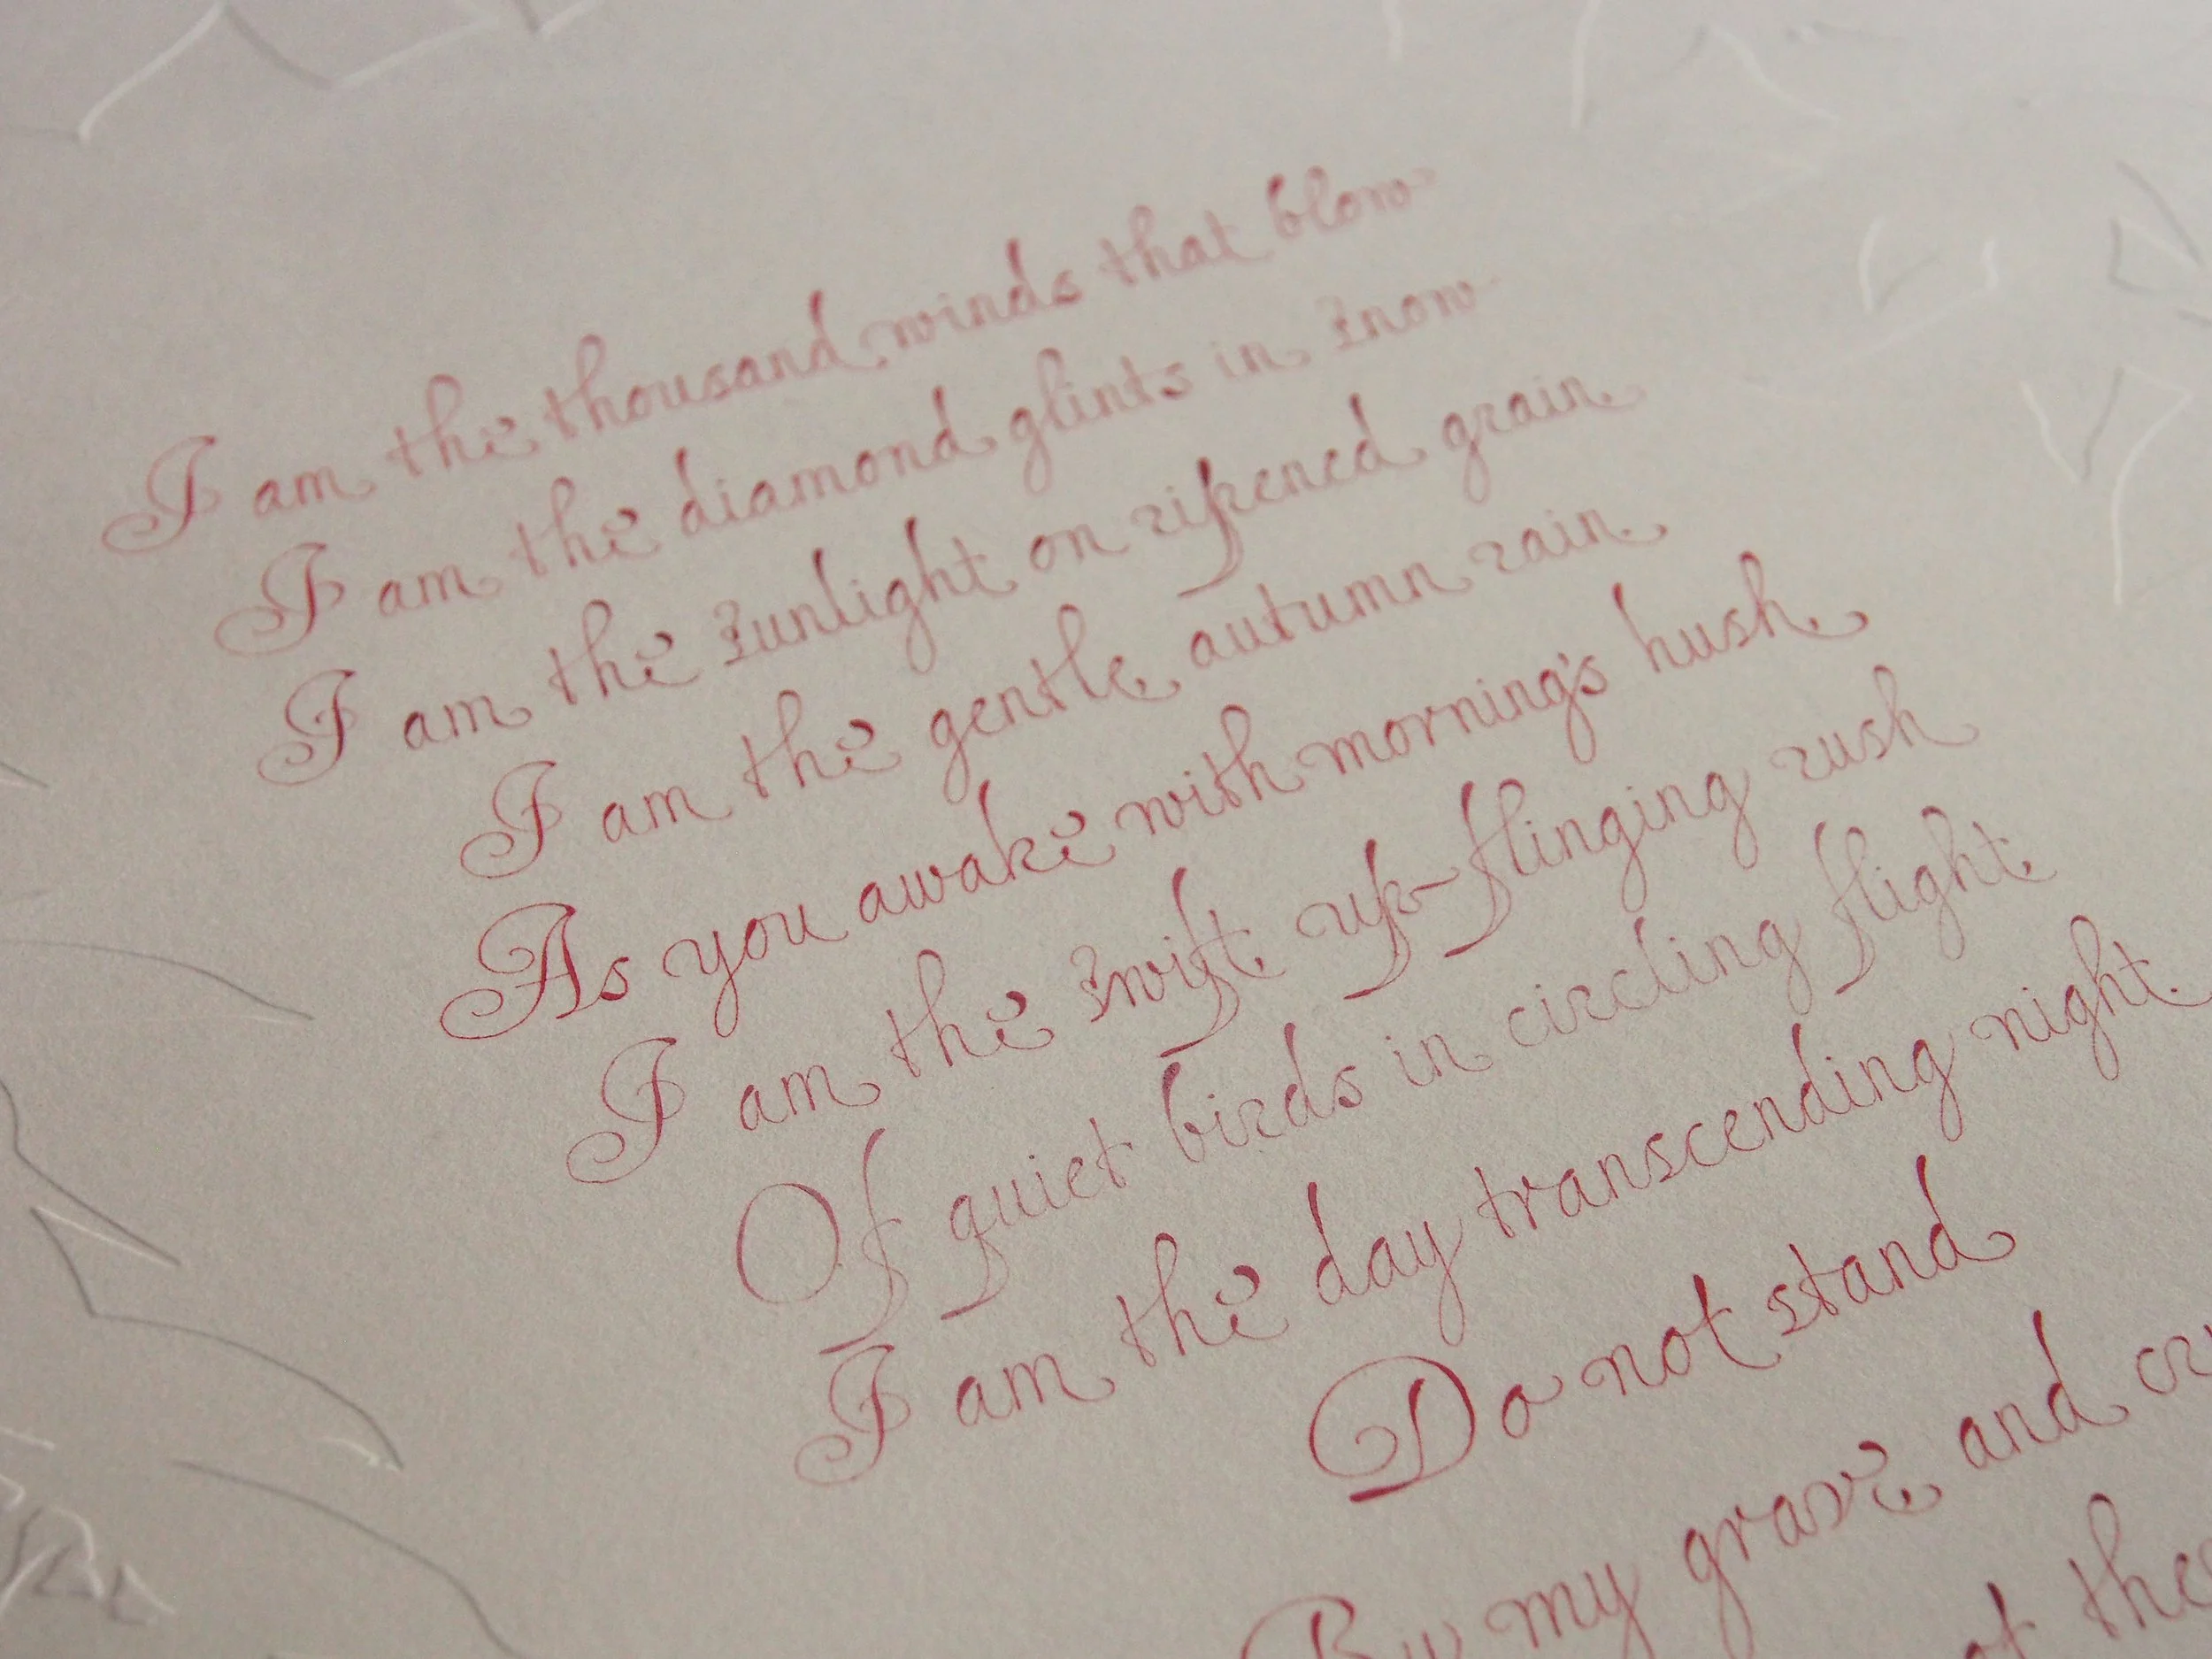 I am the thousand winds that blow
I am the diamond glints in snow
I am the sunlight on ripened grain
I am the gentle autumn rain
As you awake with morning's hush
I am the swift up-flinging rush
Of quiet birds in circling flight
I am the day transcending night
Do not stand
By my grave and